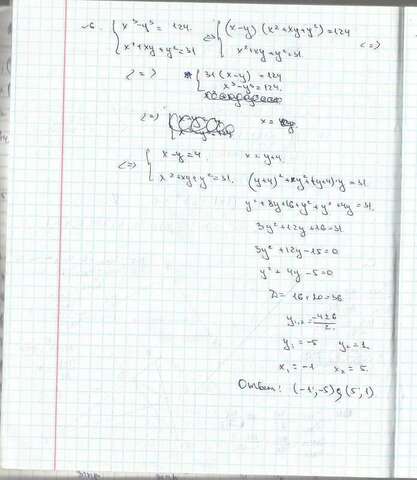 { x³-y³ = 124. <=> { (x-y)(x²+xy+y²)=124
{ x²+xy+y²=31 { x²+xy+y²=31. <=>
<=> { 31(x-y)=124
{ x³-y³=124.
<=> x=
<=> { x-y=4. x=y+4.
{ x²+xy+y²=31. (y+4)²+y²+(y+4)·y=31
y²+8y+16+y²+y²+4y=31.
3y²+12y+16=31
3y²+12y-15=0
y²+4y-5=0
D=16+20=36
y₁,₂=-4±6/2.
y₁=-5 y₂=1.
x₁=-1 x₂=5.
Ответ: (-1;-5); (5;1)